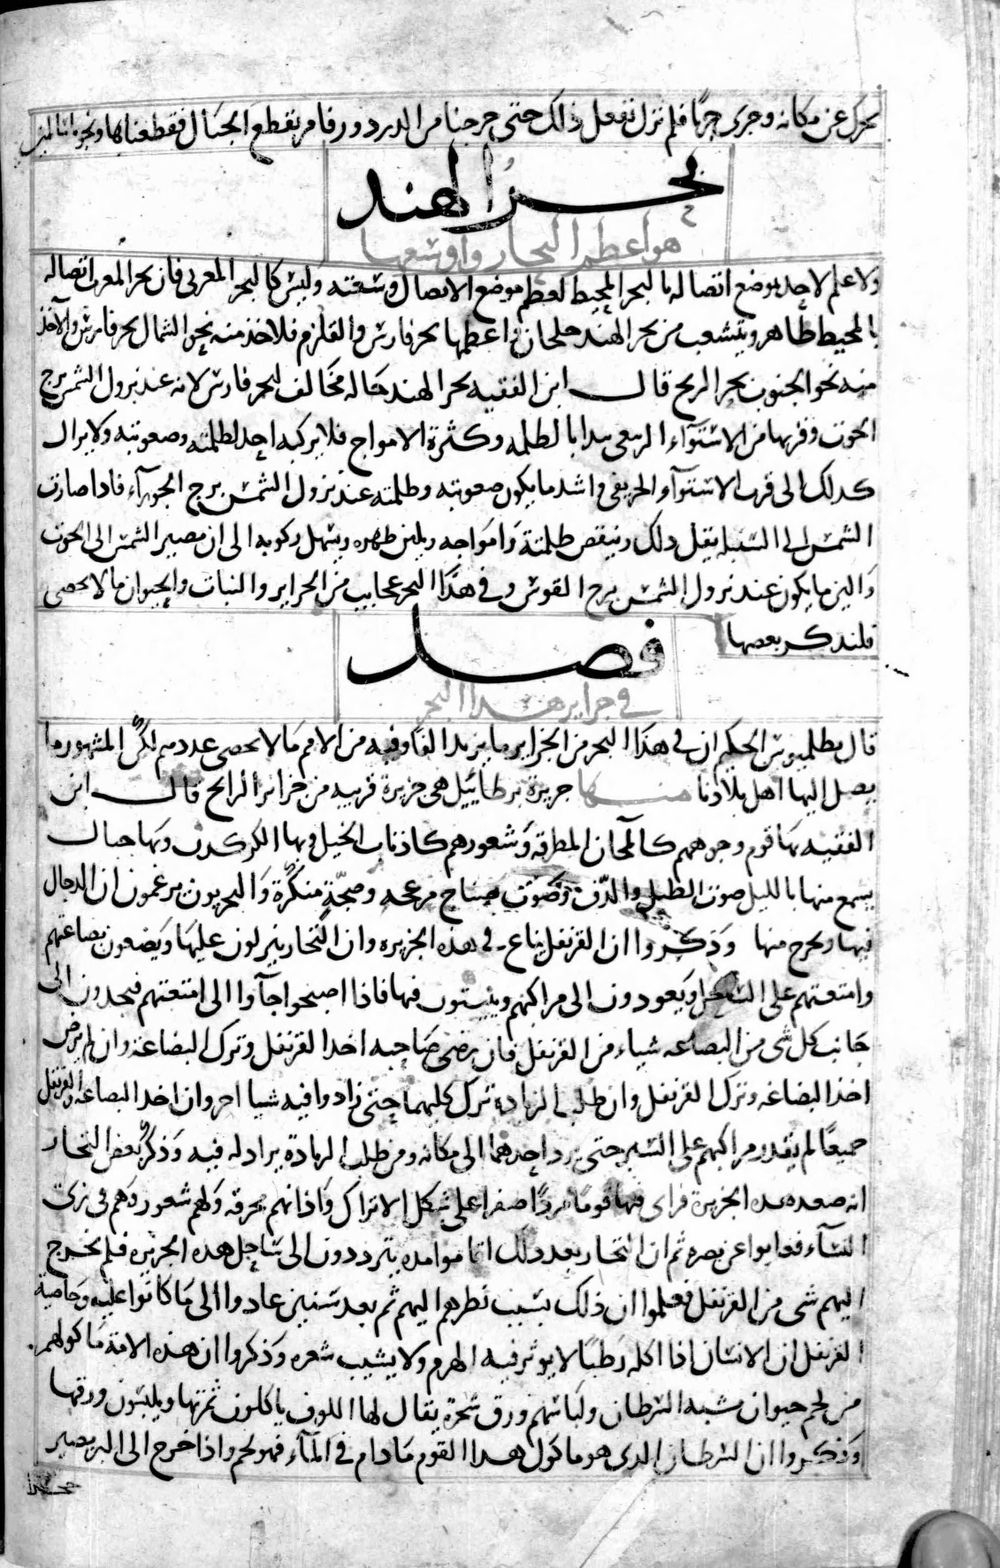 تحرك عن مكانه وجرى جريا فلم نزل نفعل ذلك حتى خرجنا من الدردور فامر بقطع الحبال فقطعناها ونجونا
بحر الهند
هو اعظم البحار واوسعها
ولا علم لاحد بموضع اتصاله بالبحر المحيط لعظم موضع الاتصال وسعته وليس كالبحر المغربى فان بحر المغرب اتصاله
بالمحيط ظاهر ويتشعب من بحر الهند خلجان اعظمها بحر فارس والقلزم فلاخذ منه نحو الشمال بحر فارس والآخذ
منه نحو الجنوب بحر الزنج قال ابن الفقيه بحر الهند حاله مخالف لبحر فارس لانه عند نزول الشمس برج
الحوت وقربها من الاستوآء الربيعى يبدا بالظلمه وكثرة الامواج فلا يركبه احد لظلمته وصعوبته ولا يزال
كدلك الى قرب الاستوآء الحريفى واشد ما يكون صعوبته وظلمته عند نزول الشمس برج الجوزآء فادا صارت
الشمس الى السنبلة يقل دلك وينقص ظلمتة وامواجه ويلين ظهره ويسهل ركوبه الى ان مصير الشمس الى الحوت
والين ما يكون عند نزول الشمس برج القوس وفى هذا البحر عجايب من الجزاير والنبات والحيوان ما لا يحصى
فلندكر بعصها
فصل
فى جزاير هدا البحر
قال بطلميوس الحكيم ان فى هذا البحر من الجزاير ما يزيد الفا وفيه من الامم ما لا يحصى عددهم لكن المشهور ما
يصل اليها اهل بلادنا منها جزيرة برطاييل هى جزيرة قريبه من جزاير الزابج قال ابن
الفقيه بها قوم وجوههم كالمجان المطرقة وشعورهم كاذناب الخيل وبها الكركدن وبها جبال
يسمع منها بالليل صوت الطبل والدف وصوت صياح مزعجه وضجّة منكرة والبحريون يزعمون ان الدجال
فيها ويخرج منها وذكروا ان القرنفل يباع فى هذه الجزيره وان التجار ينزلون عليها ويضعون بضاعتهم
وامتعتهم على الساحل ويعودون الى مراكبهم ويبيتون فيها فاذا اصبحوا جآوا الى امتعتهم فيجدون الى
جانب كل شى من البضاعه شياء من القرنفل فان رضى صاحبه اخدا لقرنفل وترك البضاعة وان لم يرض
اخد البضاعه وترك القرنفل وان طلب الزيادة ترك كليهما حتى زادوا فيه شيا اخر وان اخد البضاعة والقرنفل
جميعًا لم يقدر مراكبهم على السير حتى يرد احدهما الى مكانه ومن طلب الزيادة يزاد له فيه وذكر بعض التجار
انه صعد هده الجزيرة فراى فيها قوما مُردًا صفرا على شكل الاتراك واذانهم مخرقه ولهم شعور وهم فى زى
النسآء فغابوا عن بصره ثم ان التجار بعد دلك اقاموا مده يترددون الى ساحل هده الجزيره فلم يخرج
اليهم شى من القرنفل فعلموا ان ذلك بسبب نظرهم اليهم ثم بعد سنين عادوا الى ما كانوا عليه وخاصية
القرنفل ان الانسان اذا اكله رطبًا لا يوثر فيه الهرم ولا يشيب شعره وذكروا ان هذه الامة ماكولهم
من لحم حيوان شبه السرطان ولباسهم ورق شجرة يقال لها اللوف ياكلون ثمرتها ويلبسون ورقها
وذكروا ان السرطان الدى هو ماكول هدا القوم مادام فى المآء فهو لحم واذا خرج الى البر يصير
حجرا